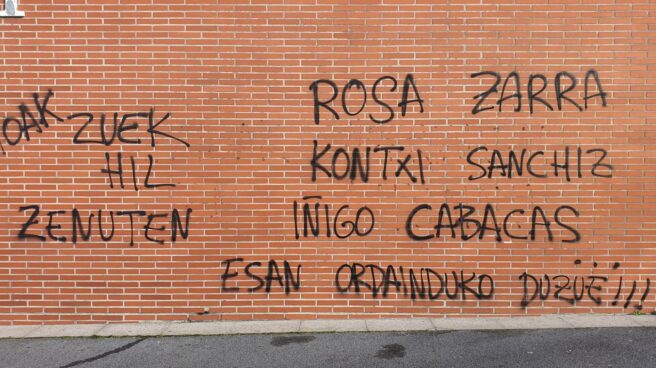 ZUEK
HIL
ZENUTEN
ROSA ZARRA
KONTXI SANCHIZ
IÑIGO CABACAS
ESAN ORDAINDUKO DUZUE!!!